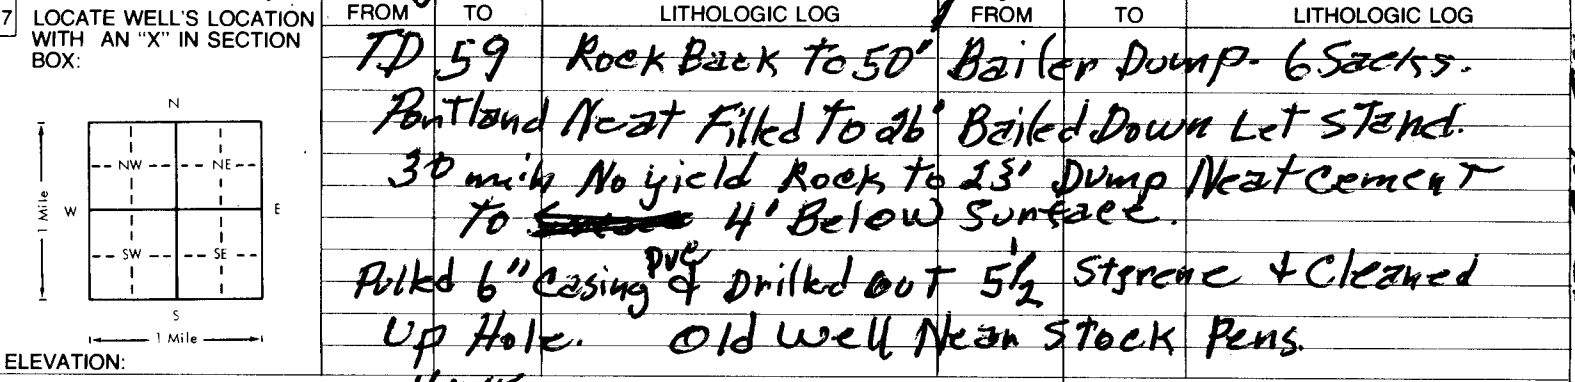 7 LOCATE WELL'S LOCATION
WITH AN "X" IN SECTION
BOX:
N
NW NE
W E
SW SE
S
1 Mile
1 Mile
ELEVATION:
FROM TO LITHOLOGIC LOG FROM TO LITHOLOGIC LOG
TD 59 Rock Back To 50' Bailer Dump- 6 Sacks.
Portland Neat Filled To 26' Bailed Down Let stand.
30 min No yield Rock to 23' Dump Neat cement
To 4' Below Surface.
Pulled 6" Casing pvc & Drilled out 5 1/2 Styrene & Cleaned
Up Hole. Old Well Near Stock Pens.